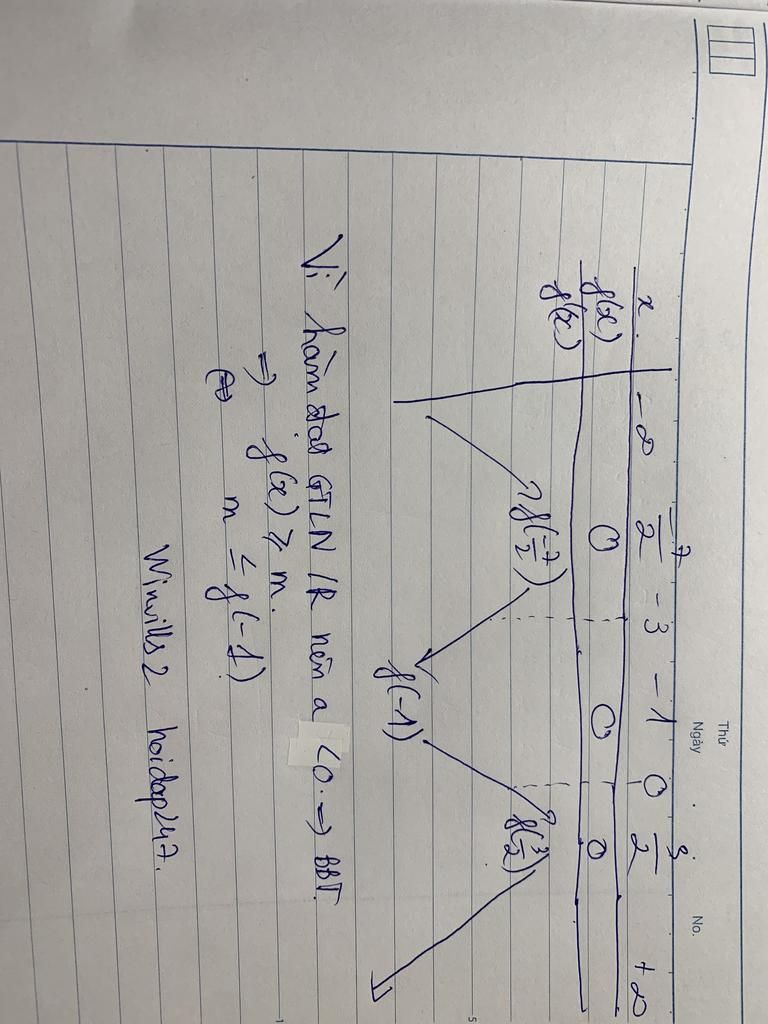 Thứ
Ngày No.
x -∞ -7/2 -3 -1 0 3/2 +∞
f'(x) 0 0 0
f(x) f(-7/2) f(-1) f(3/2)
Vì hàm đạt GTLN /R nên a <0. => BBT
=> f(x) ≥ m.
(=) m ≤ f(-1)
Winwills2 hoidap247.